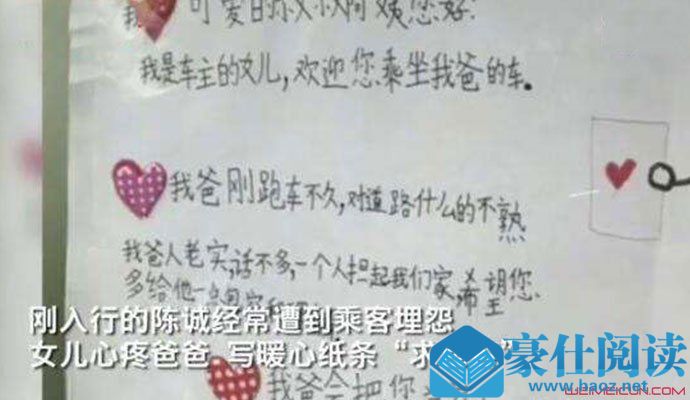 可爱的叔叔阿姨您好!
我是车主的女儿,欢迎您乘坐我爸的车。
我爸刚跑车不久,对道路什么的不熟
我爸人老实,话不多,一个人担起我们家,希望您
多给他一点
刚入行的陈诚经常遭到乘客埋怨
女儿心疼爸爸 写暖心纸条“求
我爸会把你
豪仕阅读
www.haoz.net
WEIMEICUN.COM